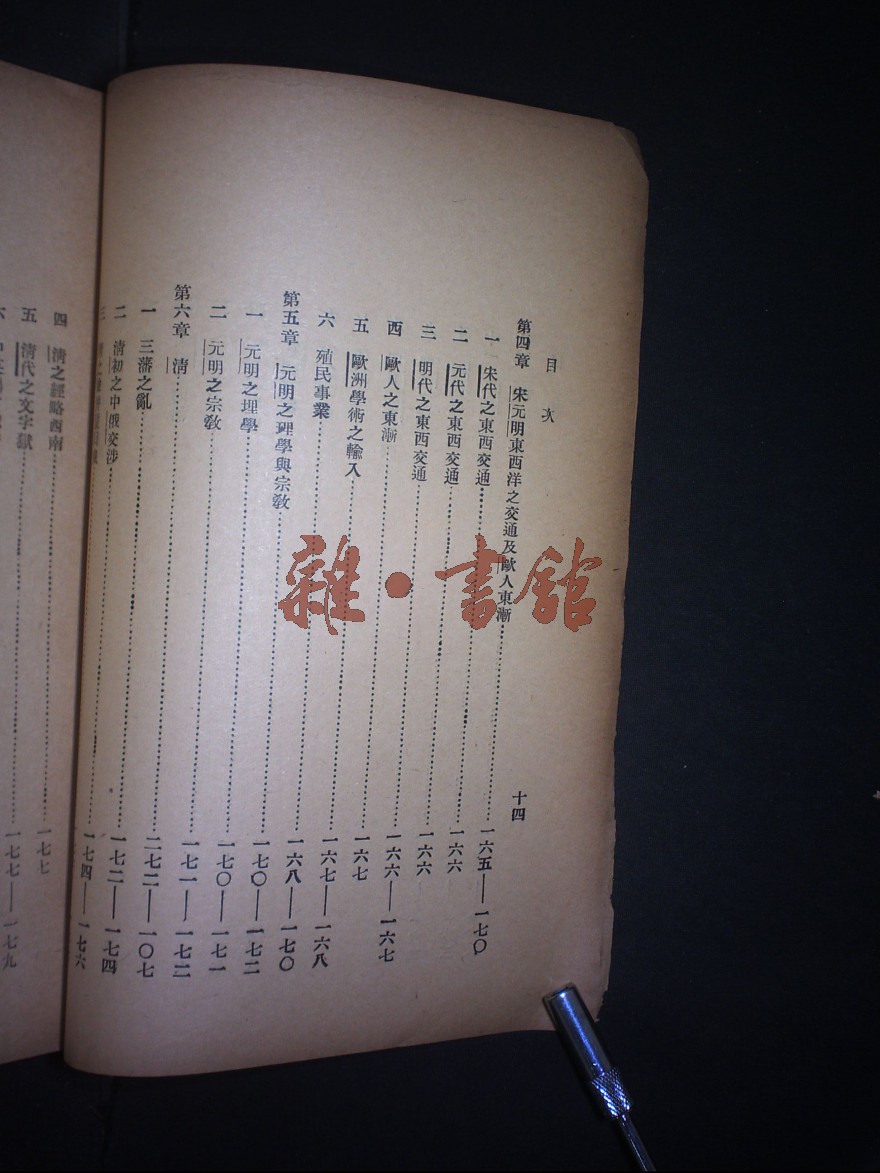 目次 十四
第四章 宋元明東西洋之交通及歐人東漸……一六五——一七〇
一 宋代之東西交通……一六六
二 元代之東西交通……一六六
三 明代之東西交通……一六六——一六七
西 歐人之東漸……一六七
五 歐洲學術之輸入……一六七——一六八
六 殖民事業……一六八——一七〇
第五章 元明之理學與宗教……一七〇——一七二
一 元明之理學……一七〇——一七一
二 元明之宗教……一七一——一七二
第六章 清……二七二——一〇七
一 三藩之亂……一七二——一七四
二 清初之中俄交涉……一七四——一七六
三
四 清之經略西南……一七七
五 清代之文字獄……一七七——一七九
雜·書館